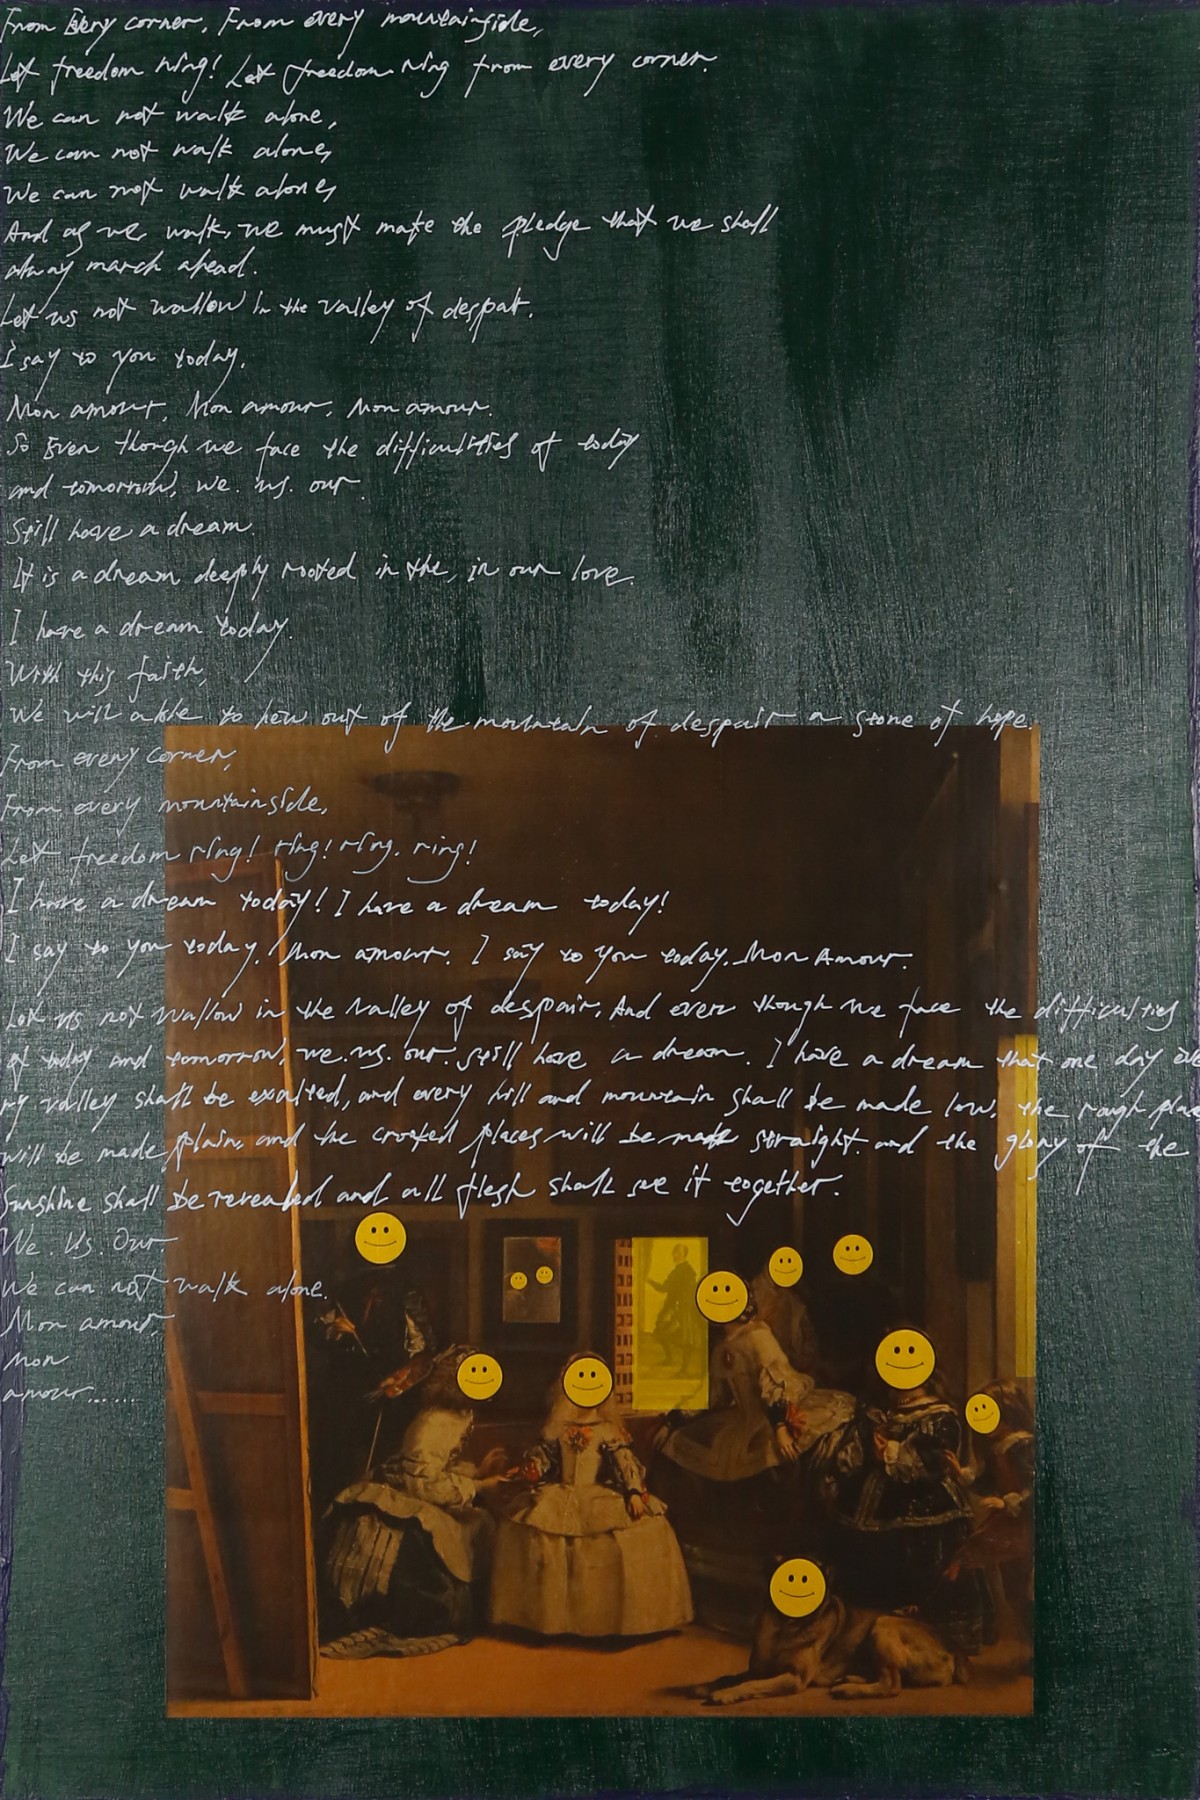 From Every corner, From every mountainside,
Let freedom ring! Let freedom ring from every corner.
We can not walk alone,
We can not walk alone,
We can not walk alone,
And as we walk, we must make the pledge that we shall
alway march ahead.
Let us not wallow in the valley of despair.
I say to you today.
Mon amour, Mon amour, Mon amour.
So Even though we face the difficulties of today
and tomorrow, we. us. our.
Still have a dream.
It is a dream deeply rooted in the, in our love.
I have a dream today.
With this faith,
We will able to hew out of the mountain of despair a stone of hope.
From every corner,
From every mountainside,
Let freedom ring! ring! ring. ring!
I have a dream today! I have a dream today!
I say to you today. Mon amour. I say to you today. Mon Amour.
Let us not wallow in the valley of despair. And even though we face the difficulties
of today and tomorrow, we. us. our. still have a dream. I have a dream that one day eve
ry valley shall be exalted, and every hill and mountain shall be made low, the rough place
will be made plain, and the crooked places will be made straight. and the glory of the
Sunshine shall be revealed and all flesh shall see it together.
We. Us. Our.
We can not walk alone.
Mon amour,
Mon
amour......